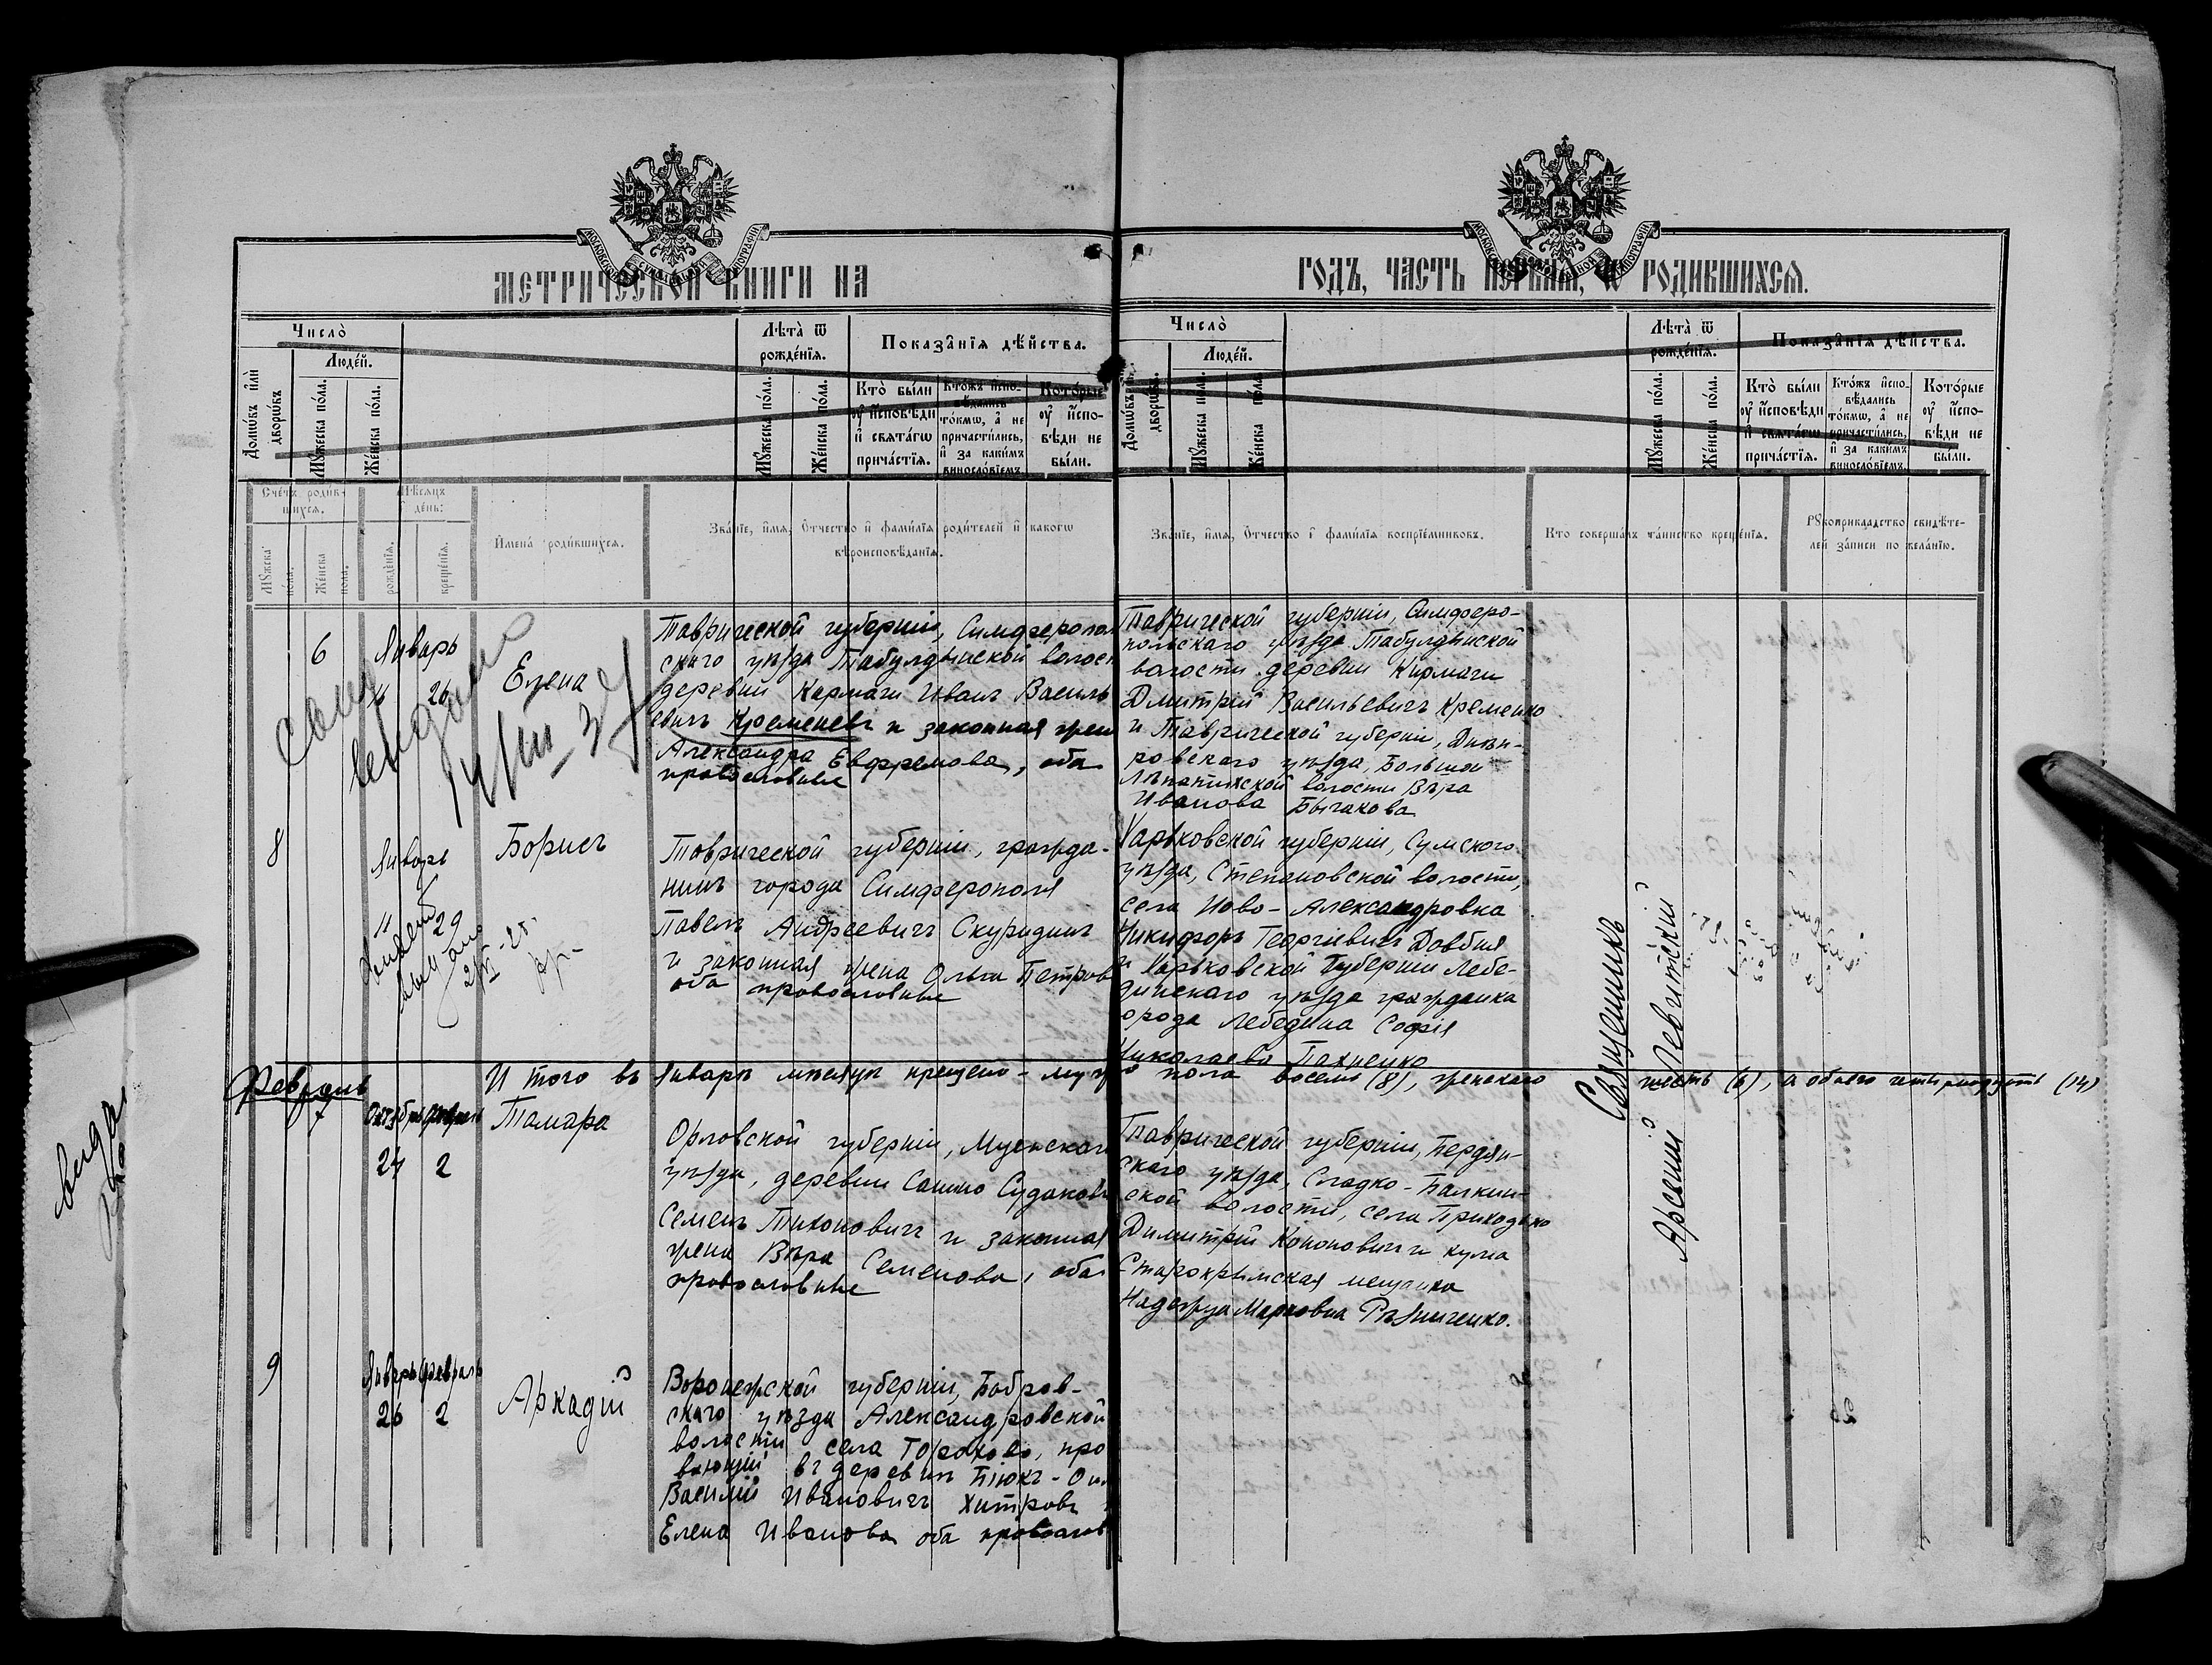 МЕТРИЧЕСКОЙ КНИГИ НА
ГОДЪ, ЧАСТЬ ПЕРВАЯ, Ѡ РОДИВШИХСЯ.
Число̀
Людей.
Домѡвъ и҆лѝ дворѡвъ
Мꙋжеска по́ла.
Же́нска по́ла.
Лѣта̀ ѿ рожде́нїѧ.
Мꙋжеска по́ла.
Же́нска по́ла.
Показа̑нїѧ дѣ́йства.
Кто̀ бы́ли оу҆ и҆сповѣди и҆ свѧта́гѡ прича́стїѧ.
Кто́жъ и҆спо-
вѣдались
то́кмѡ, а҆ не
причасти́лись,
и҆ за каки́мъ
винослові́емъ.
Кото́рые оу҆ и҆спо-
вѣди не
были.
Число̀
Людей.
Домѡвъ
дворѡвъ.
Мꙋжеска по́ла.
Же́нска по́ла.
Лѣта̀ ѿ рожде́нїѧ.
Мꙋжеска по́ла.
Же́нска по́ла.
Показа̑нїѧ дѣ́йства.
Кто̀ бы́ли оу҆ и҆сповѣди и҆ свѧта́гѡ прича́стїѧ.
Кто́жъ и҆спо-
вѣдались
то́кмѡ, а҆ не
причасти́лись,
и҆ за каки́мъ
винослові́емъ.
Кото́рые оу҆ и҆спо-
вѣди не
были.
Счетъ роди́в-
шихсѧ.
Мꙋжеска по́ла.
Же́нска пола.
Мѣсѧцъ и день:
рожде́нїѧ.
креще́нїѧ.
Имена̀ роди́вшихсѧ.
Зва́нїе, и҆́мѧ, ѻ҆́тчество и҆ фами́лїѧ роди́телей и҆ како́гѡ
вѣроисповѣданїѧ.
Зва́нїе, и҆́мѧ, ѻ҆́тчество и҆ фами́лїѧ воспрїе́мниковъ.
Кто соверша́лъ та́инство креще́нїѧ.
Рꙋкоприкладство свидѣте-
лей за́писи по жела́нїю.
6
Январь
26
Елена
Таврической губернiи, Симферопол
скаго уѣзда Табулдынской волост
деревни Кармаги Иванъ Василь
евичъ Кременевъ и законная жен
Александра Евфремова, оба
православные
Таврической губернiи, Симферо-
польскаго уѣзда Табулдынской
волости деревни Кирмаги
Дмитрiй Васильевичъ Кременко
и Таврической губернiи, Днѣп-
ровскаго уѣзда, Больша
Лѣпатихской волости Вѣра
Иванова Бычакова
8
Январь
11 29
Борисъ
Таврической губернiи, гражда-
нинъ города Симферополя
Павелъ Андреевичъ Скуридинъ
и законная жена Ольга Петров
оба православные
Харьковской губернiи, Сумского
уѣзда, Степановской волости,
села Ново-Александровка
Никифоръ Георгiевичъ Довбня
и Харьковской Губернiи Лебе-
динскаго уѣзда гражданка
орода Лебедина Софiя
Николаева Пахненко
Священникъ
Арсенiй Левитскiй
Февраль
И того въ Январѣ мѣсяцѣ крещено - муж
о пола восемь (8), женскаго
шесть (6), а обоего четырнадцать (14)
7
Октябрь Февраль
24 2
Тамара
Орловской губернiи, Мценскаг
уѣзда, деревни Сашно Судаков
Семенъ Тихоновичъ и законная
жена Вѣра Семенова, оба
православные
Таврической губернiи, Бердян-
скаго уѣзда, Сладко-Балкин-
ской волости, села Приходько
Димитрiй Кононовичъ и кума
Старокрымская мещанка
Надежда Марковна Рѣзниченко.
9
Январь Февраль
26 2
Аркадiй
Воронежской губернiи, Бобров-
скаго уѣзда Александровской
волости села Горохово, про
вающiй въ деревнѣ Бiюкъ-Он
Василiй Ивановичъ Хитровъ
Елена Иванова оба православ